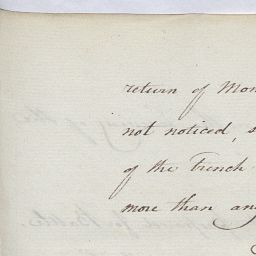 return of Mon
not noticed, s
of the French
more than any